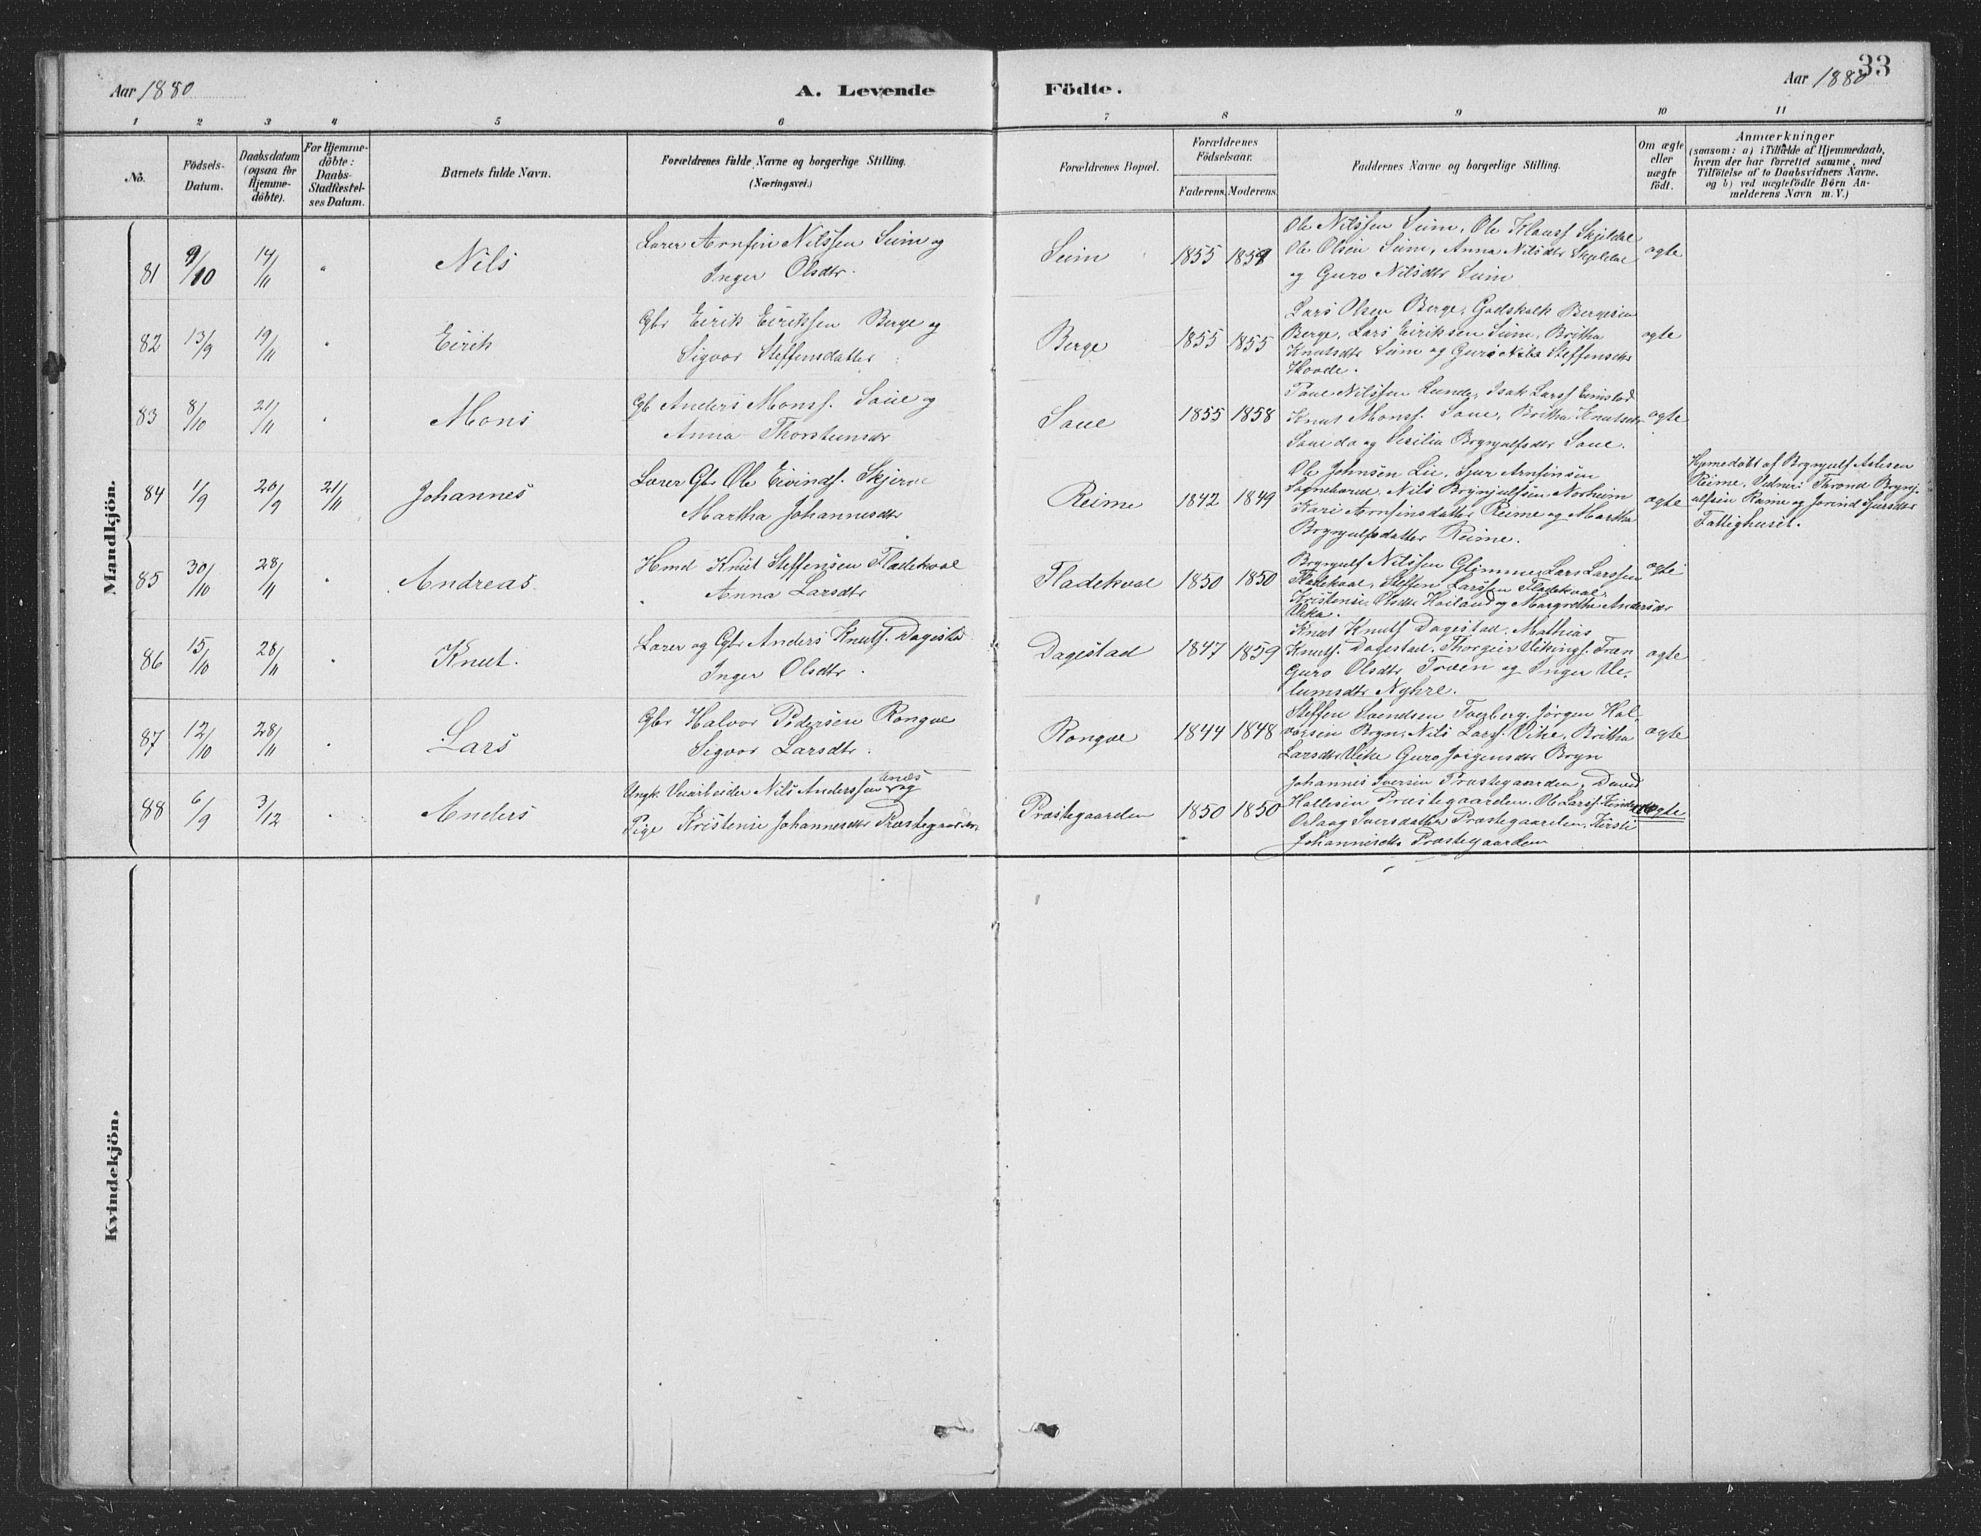 33
Aar 1880
A. Levende
Födte.
Aar 1880
1 2 3 4 5 6 7 8 9 10 11
No.
Födsels-
Datum.
Daabsdatum
(ogsaa för
Hjemme-
döbte).
For Hjemme-
döbte:
Daabs-
Stadfæstel-
ses Datum.
Barnets fulde Navn.
Forældrenes fulde Navne og borgerlige Stilling.
(Næringsvei.)
Forældrenes Bopæl.
Forældrenes
Födselsaar.
Faderens. Moderens.
Faddernes Navne og borgerlige Stilling.
Om ægte
eller
uægte
födt.
Anmærkninger
(saasom: a) i Tilfælde af Hjemmedaab,
hvem der har forrettet samme, med
Tilföielse af to Daabsvidners Navne.
og b) ved uægtefödte Börn An-
melderens Navn m. V.)
Mandkjön.
81 9/10 14/11 " Nils
Lærer Arnfin Nilssen Seim og
Inger Olsdtr.
Seim 1855 1859
Ole Nilssen Seim, Ole Klausf. Skjeldal
Ole Olsen Seim, Anna Nilsdtr Skjeldal
og Guro Nilsdtr Seim
ægte
82 13/9 19/11 " Eirik
Gbr Eirik Eiriksen Berge og
Sigvor Steffensdatter
Berge 1855 1855
Lars Olsen Berge, Godskalk Bergesen
Berge, Lars Eiriksen Seim, Britha
Knutsdtr Seim og Steffensdtr
Hovde.
ægte
83 8/10 21/11 " Mons
Gb Anders Monsf. Saue og
Anna Thorsteinsdr
Saue 1855 1858
Nilssen Lunde, Isak Larsf
Knut Monsf. Saue, Britha Knutsdr
Saue da og Sesilia Brynjulfsdtr Saue.
ægte
84 1/9 20/9 21/11 Johannes
Lærer Gbr Ole Eivindf. Skjerve
Martha Johannesdtr
Reime 1842 1849
Ole Johnsen Lie, Sjur Arnfinsen
Nils Brynjulfsen Norheim
Kari Arnfinsdatter Reime og Martha
Brynjulfsdatter Reime.
ægte
Hjemedöbt af Brynjulf Aslesen
Reime. Vidner: Thrond Brynj-
ulfsen Rame og Sjursdtr
Fattighuset.
85 30/10 28/11 " Andreas
Hmd Knut Steffensen Fladekval
Anna Larsdtr
Fladekval 1850 1850
Brynjulf Nilssen Glimme, Lars Larssen
Fladekval, Steffen Larssen Fladekval
Kristensi Olsdtr og Margretha Andersdr
ægte
86 15/10 28/11 " Knut.
Lærer og Gbr Anders Knutf. Dagestad
Inger Olsdtr.
Dagestad 1847 1859
Knut Knutf Dagestad, Mathias
Knutf. Dagestad, Thorgeir Vikingf. Træn
Guro Olsdtr Træen og Inger Ve-
lumsdtr Nyhre.
ægte
87 12/10 28/11 " Lars
Gbr Halvor Pedersen Rongve
Sigvor Larsdtr.
Rongve 1844 1848
Steffen Svendsen Jörgen Hal-
vorsen Bryn, Nils Larsf. Vike, Britha
Larsdtr Vike Guro Jörgensdtr Bryn
ægte
88 6/9 3/12 " Anders
Ungk. Veiarbeider Nils Anderssen og
Pige Kristense Johannesdtr Præstegaarden
Præstegaarden 1850 1850
Johannes Iversen Præstegaarden, David
Hallesen Præstegaarden, Ole Larsf.
Orlaug Iversdatter Præstegaarden, Kirsti
Johannesdtr Præstegaarden
uægte
Kvindekjön.